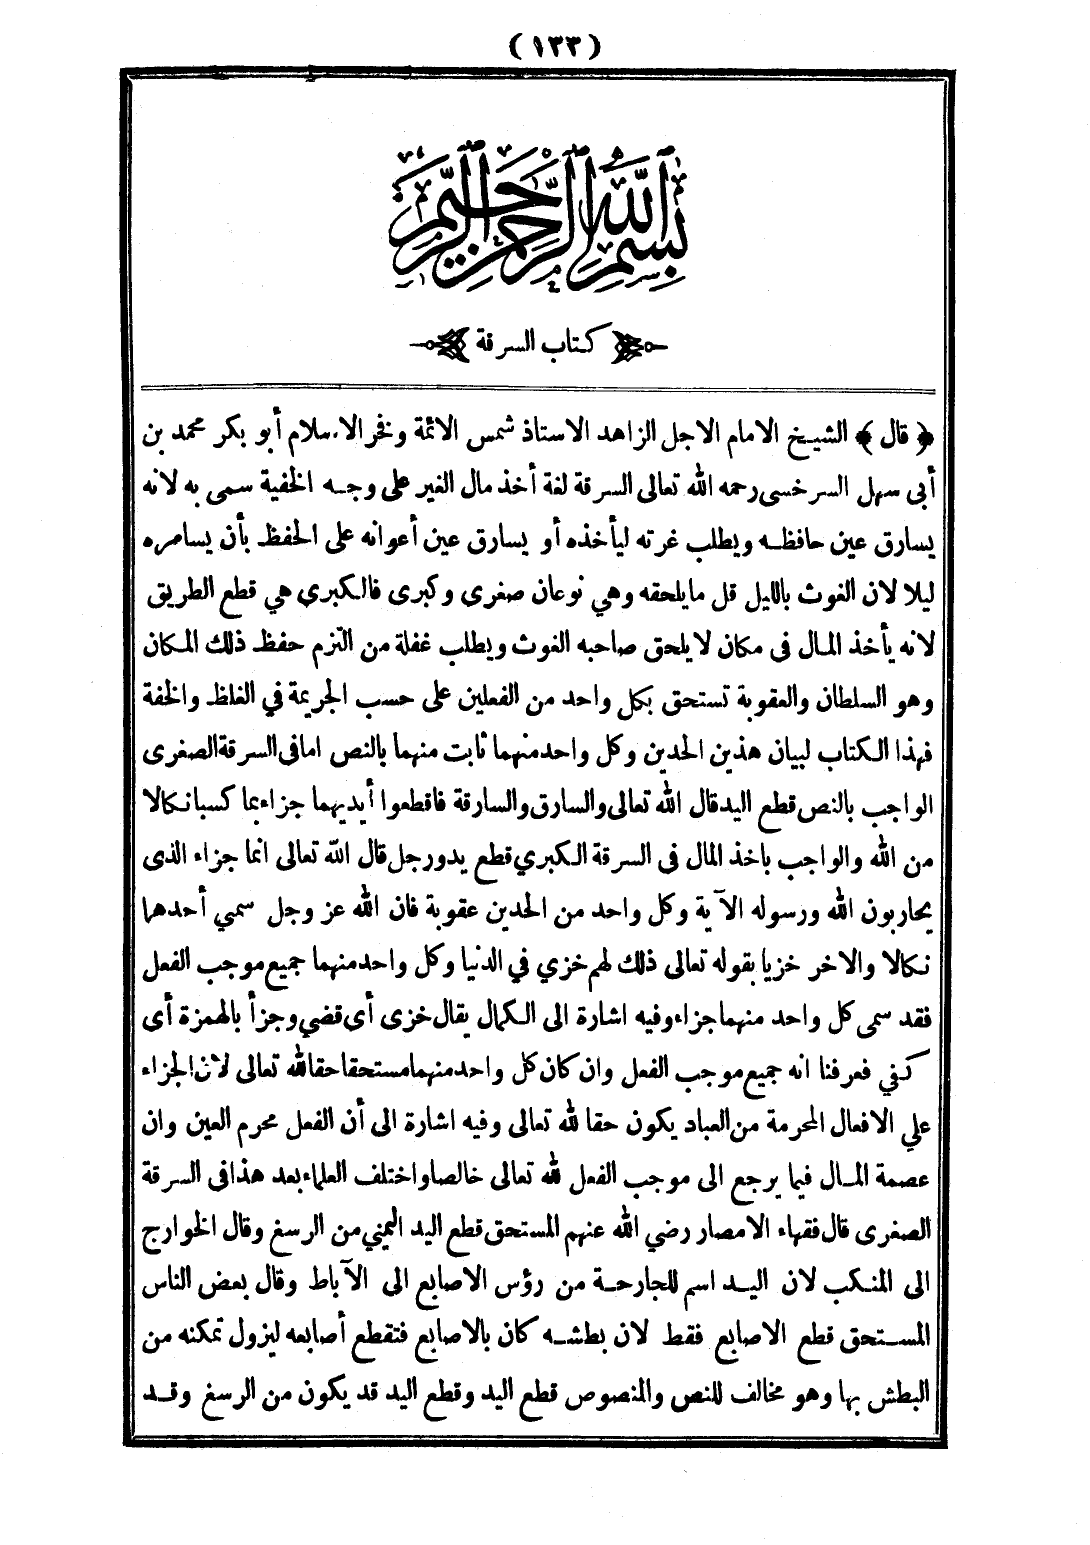 (١٣٣)
بسم الله الرحمن الرحيم
كتاب السرقة
﴿ قال ﴾ الشيخ الامام الاجل الزاهد الاستاذ شمس الائمة وفخر الاسلام أبو بكر محمد بن
أبى سهل السرخسى رحمه الله تعالى السرقة لغة أخذ مال الغير على وجه الخفية سمى به لانه
يسارق عين حافظه ويطلب غرته ليأخذه أو يسارق عين أعوانه على الحفظ بأن يسامره
ليلا لان الغوث بالليل قل ما يلحقه وهي نوعان صغرى وكبرى فالكبرى هي قطع الطريق
لانه يأخذ المال فى مكان لا يلحق صاحبه الغوث ويطلب غفلة من التزم حفظ ذلك المكان
وهو السلطان والعقوبة تستحق بكل واحد من الفعلين على حسب الجريمة في الغلظ والخفة
فهذا الكتاب لبيان هذين الحدين وكل واحد منهما ثابت منهما بالنص اما فى السرقة الصغرى
الواجب بالنص قطع اليد قال الله تعالى والسارق والسارقة فاقطعوا أيديهما جزاء بما كسبا نكالا
من الله والواجب باخذ المال فى السرقة الكبري قطع يد ورجل قال الله تعالى انما جزاء الذى
يحاربون الله ورسوله الآية وكل واحد من الحدين عقوبة فان الله عز وجل سمي أحدهما
نكالا والاخر خزيا بقوله تعالى ذلك لهم خزي في الدنيا وكل واحد منهما جميع موجب الفعل
فقد سمى كل واحد منهما جزاء وفيه اشارة الى الكمال يقال خزى أى قضي وجزأ بالهمزة أى
كفي فعرفنا انه جميع موجب الفعل وان كان كل واحد منهما مستحقا حقا لله تعالى لان الجزاء
علي الافعال المحرمة من العباد يكون حقا لله تعالى وفيه اشارة الى أن الفعل محرم العين وان
عصمة المال فيما يرجع الى موجب الفعل لله تعالى خالصا واختلف العلماء بعد هذا فى السرقة
الصغرى قال فقهاء الامصار رضي الله عنهم المستحق قطع اليد اليمني من الرسغ وقال الخوارج
الى المنكب لان اليد اسم للجارحة من رؤس الاصابع الى الآباط وقال بعض الناس
المستحق قطع الاصابع فقط لان بطشه كان بالاصابع فتقطع أصابعه ليزول تمكنه من
البطش بها وهو مخالف للنص والمنصوص قطع اليد وقطع اليد قد يكون من الرسغ وقد